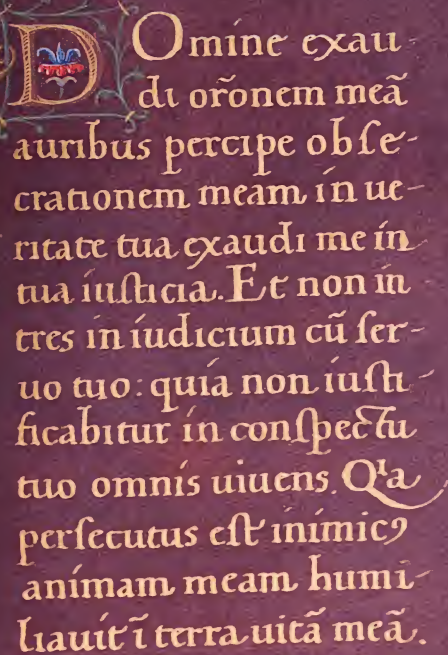 DOmine exau
di or̃onem meã
auribus percipe obſe-
crationem meam in ue-
ritate tua exaudi me in
tua iuſticia. Et non in
tres in iudicium cũ ſer-
uo tuo: quia non iuſti-
ficabitur in conſpectu
tuo omnis uiuens. Qꝛa
perſecutus eſt inimicꝰ
animam meam humi-
liauit ĩ terra uitã meã.